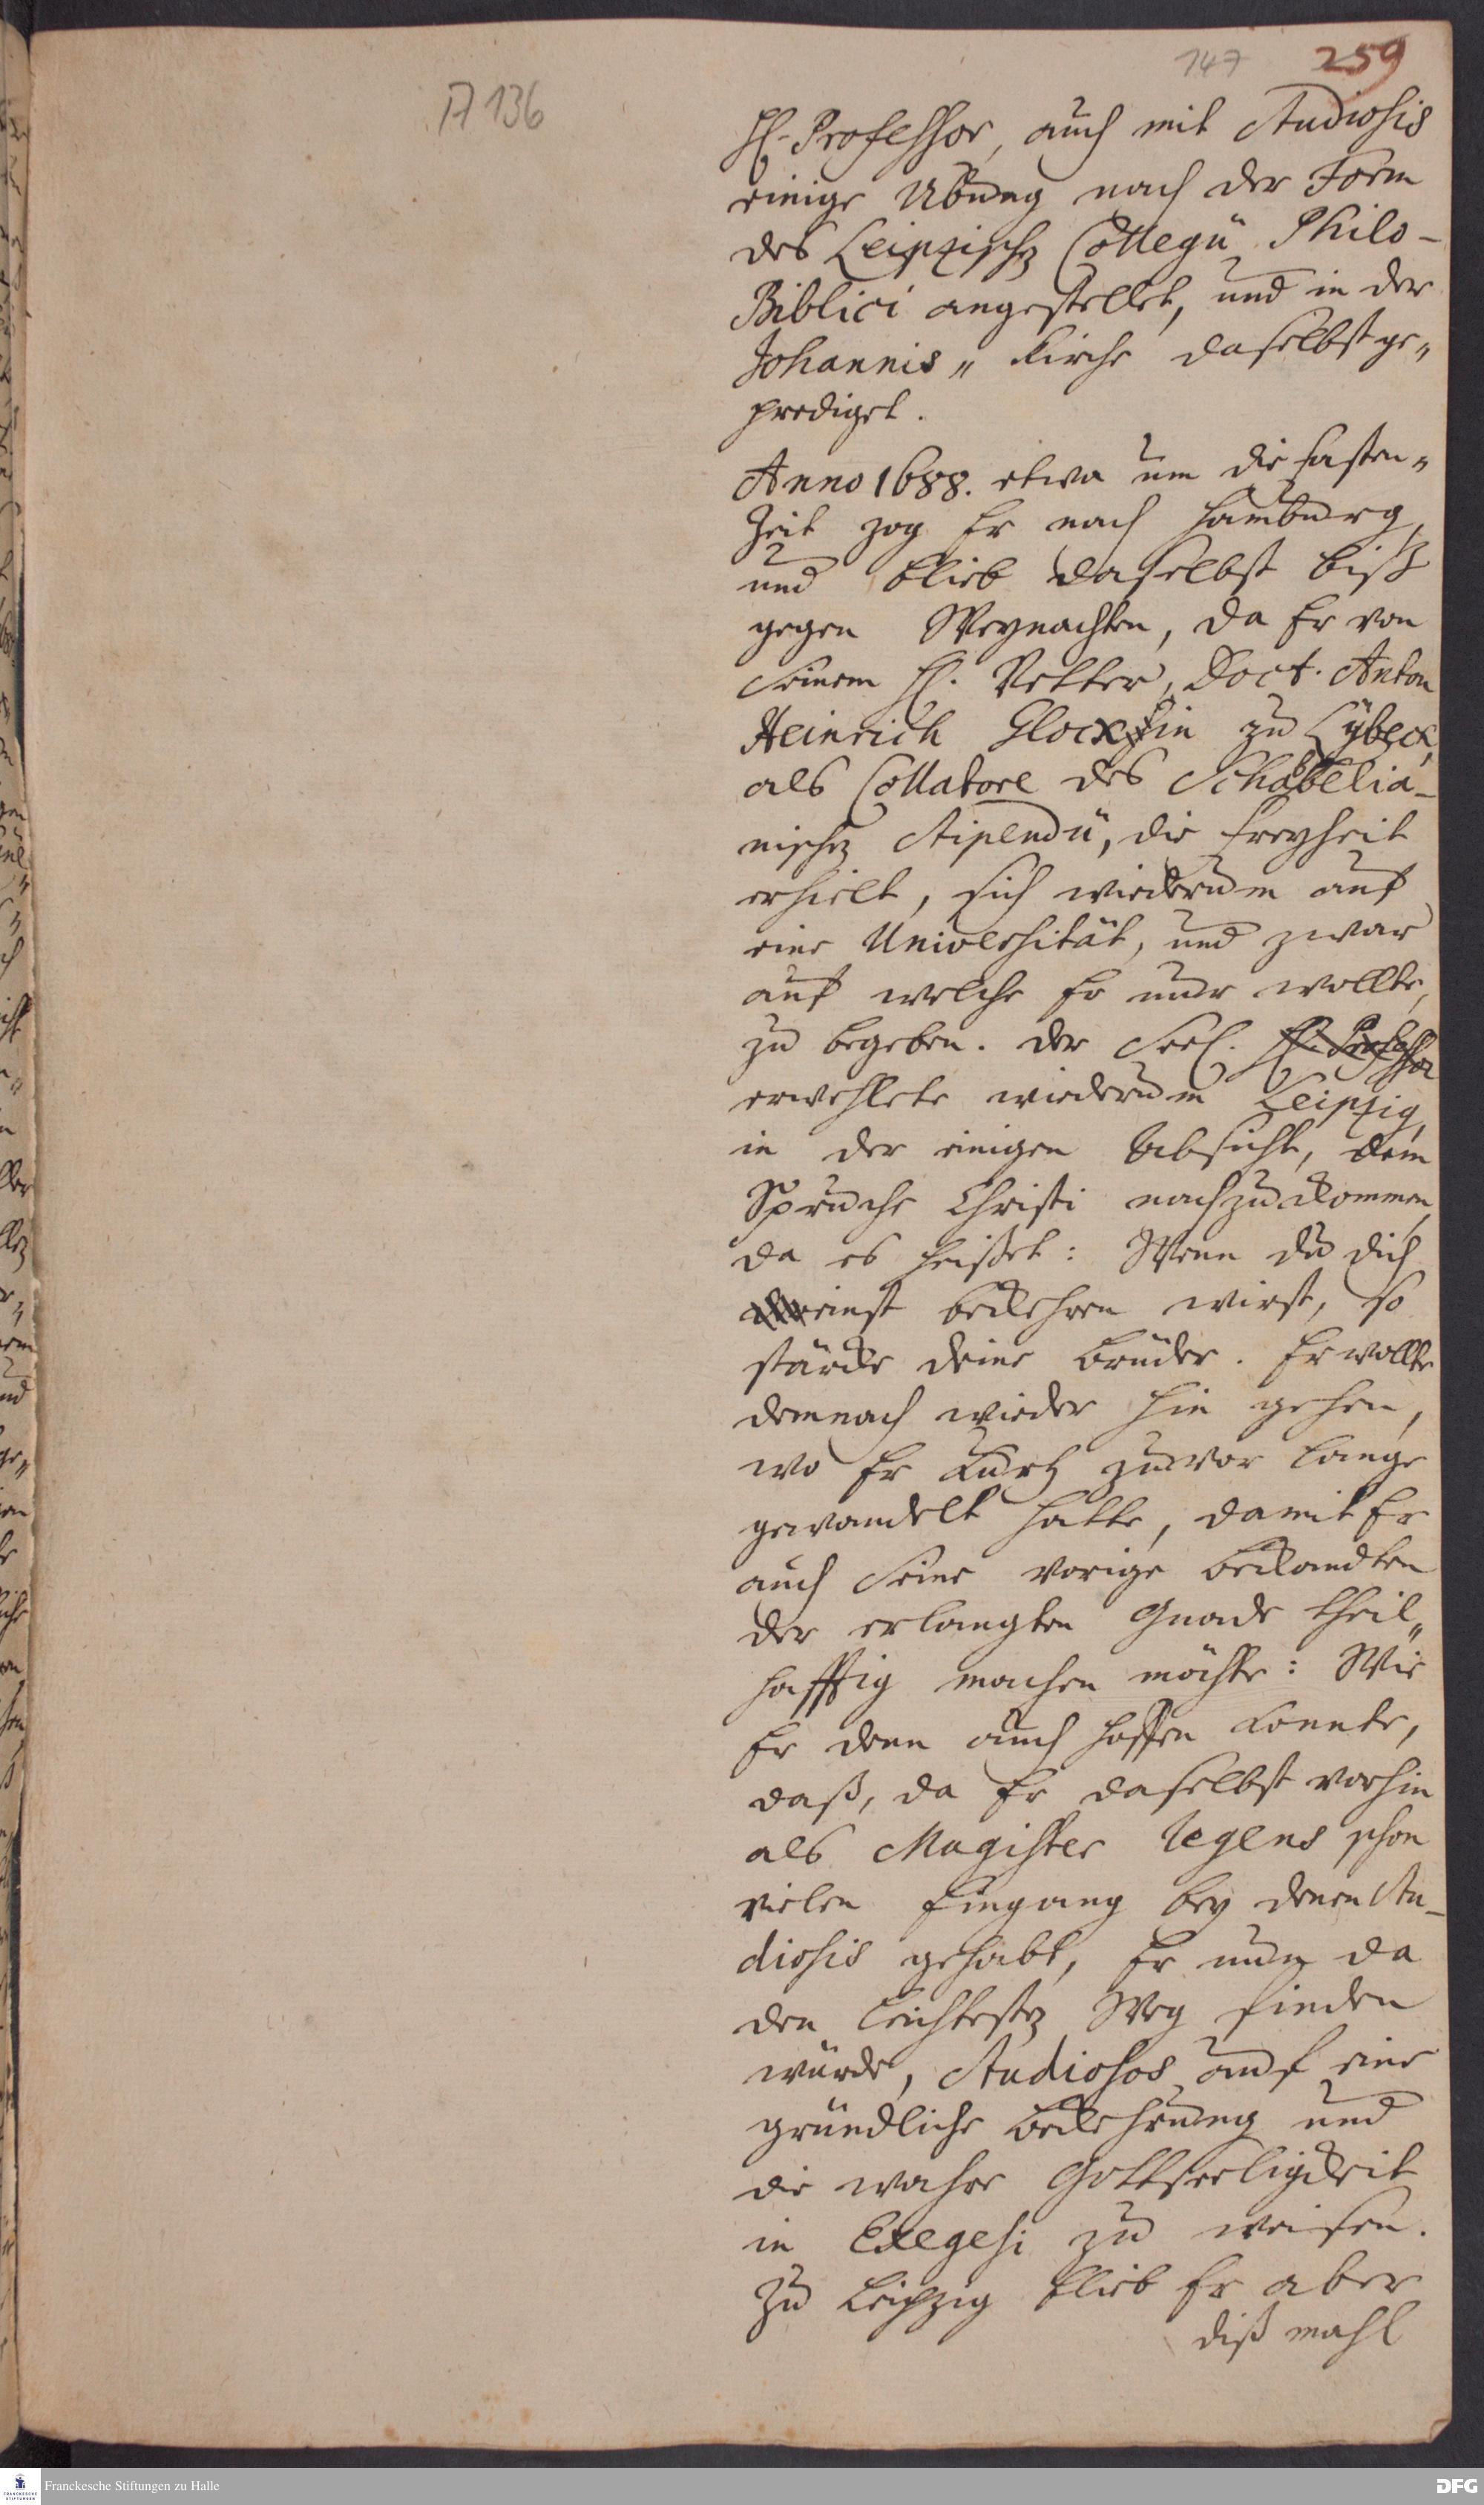 147 259
A 136
H. Professor, auch mit Studiosis
einige Ubung nach der Form
des Leipzischen Collegii Philo-
Biblici angestellet, und in der
Johannis„ Kirche daselbst ge„
prediget.
Anno 1688. etwa um die Fasten„
Zeit zog Er nach Hamburg,
und blieb daselbst biß
gegen Weynachten, da Er von
Seinem H. Vetter, Doct. Anton
Heinrich Gloxin zu Lübeck,
als Collatore des Schabbelia-
nischen Stipendii, die Freyheit
erhielt, sich wiederum auf
eine Universität, und zwar
auf welche Er nur wollte,
zu begeben. Der Seel. H. Professor
erwehlete wiederum Leipzig,
in der einigen Absicht, dem
Spruche Christi nachzukommen,
da es heißet: Wenn du dich
einst bekehren wirst, so
stärcke deine Brüder. Er wollte
demnach wieder hin gehen,
wo Er kurtz zuvor lange
gewandelt hatte, damit Er
auch Seine vorige Bekandten
der erlangten Gnade theil„
hafftig machen möchte: Wie
Er denn auch hoffen konnte,
daß, da Er daselbst vorhin
als Magister legens schon
vielen Eingang bey denen Stu-
diosis gehabt, Er nun da
den leichtesten Weg finden
würde, Studiosos auf eine
gründliche Bekehrung und
die wahre Gottseeligkeit
in Exegesi zu weisen.
Zu Leipzig blieb Er aber
diß mahl
Franckesche Stiftungen zu Halle
DFG